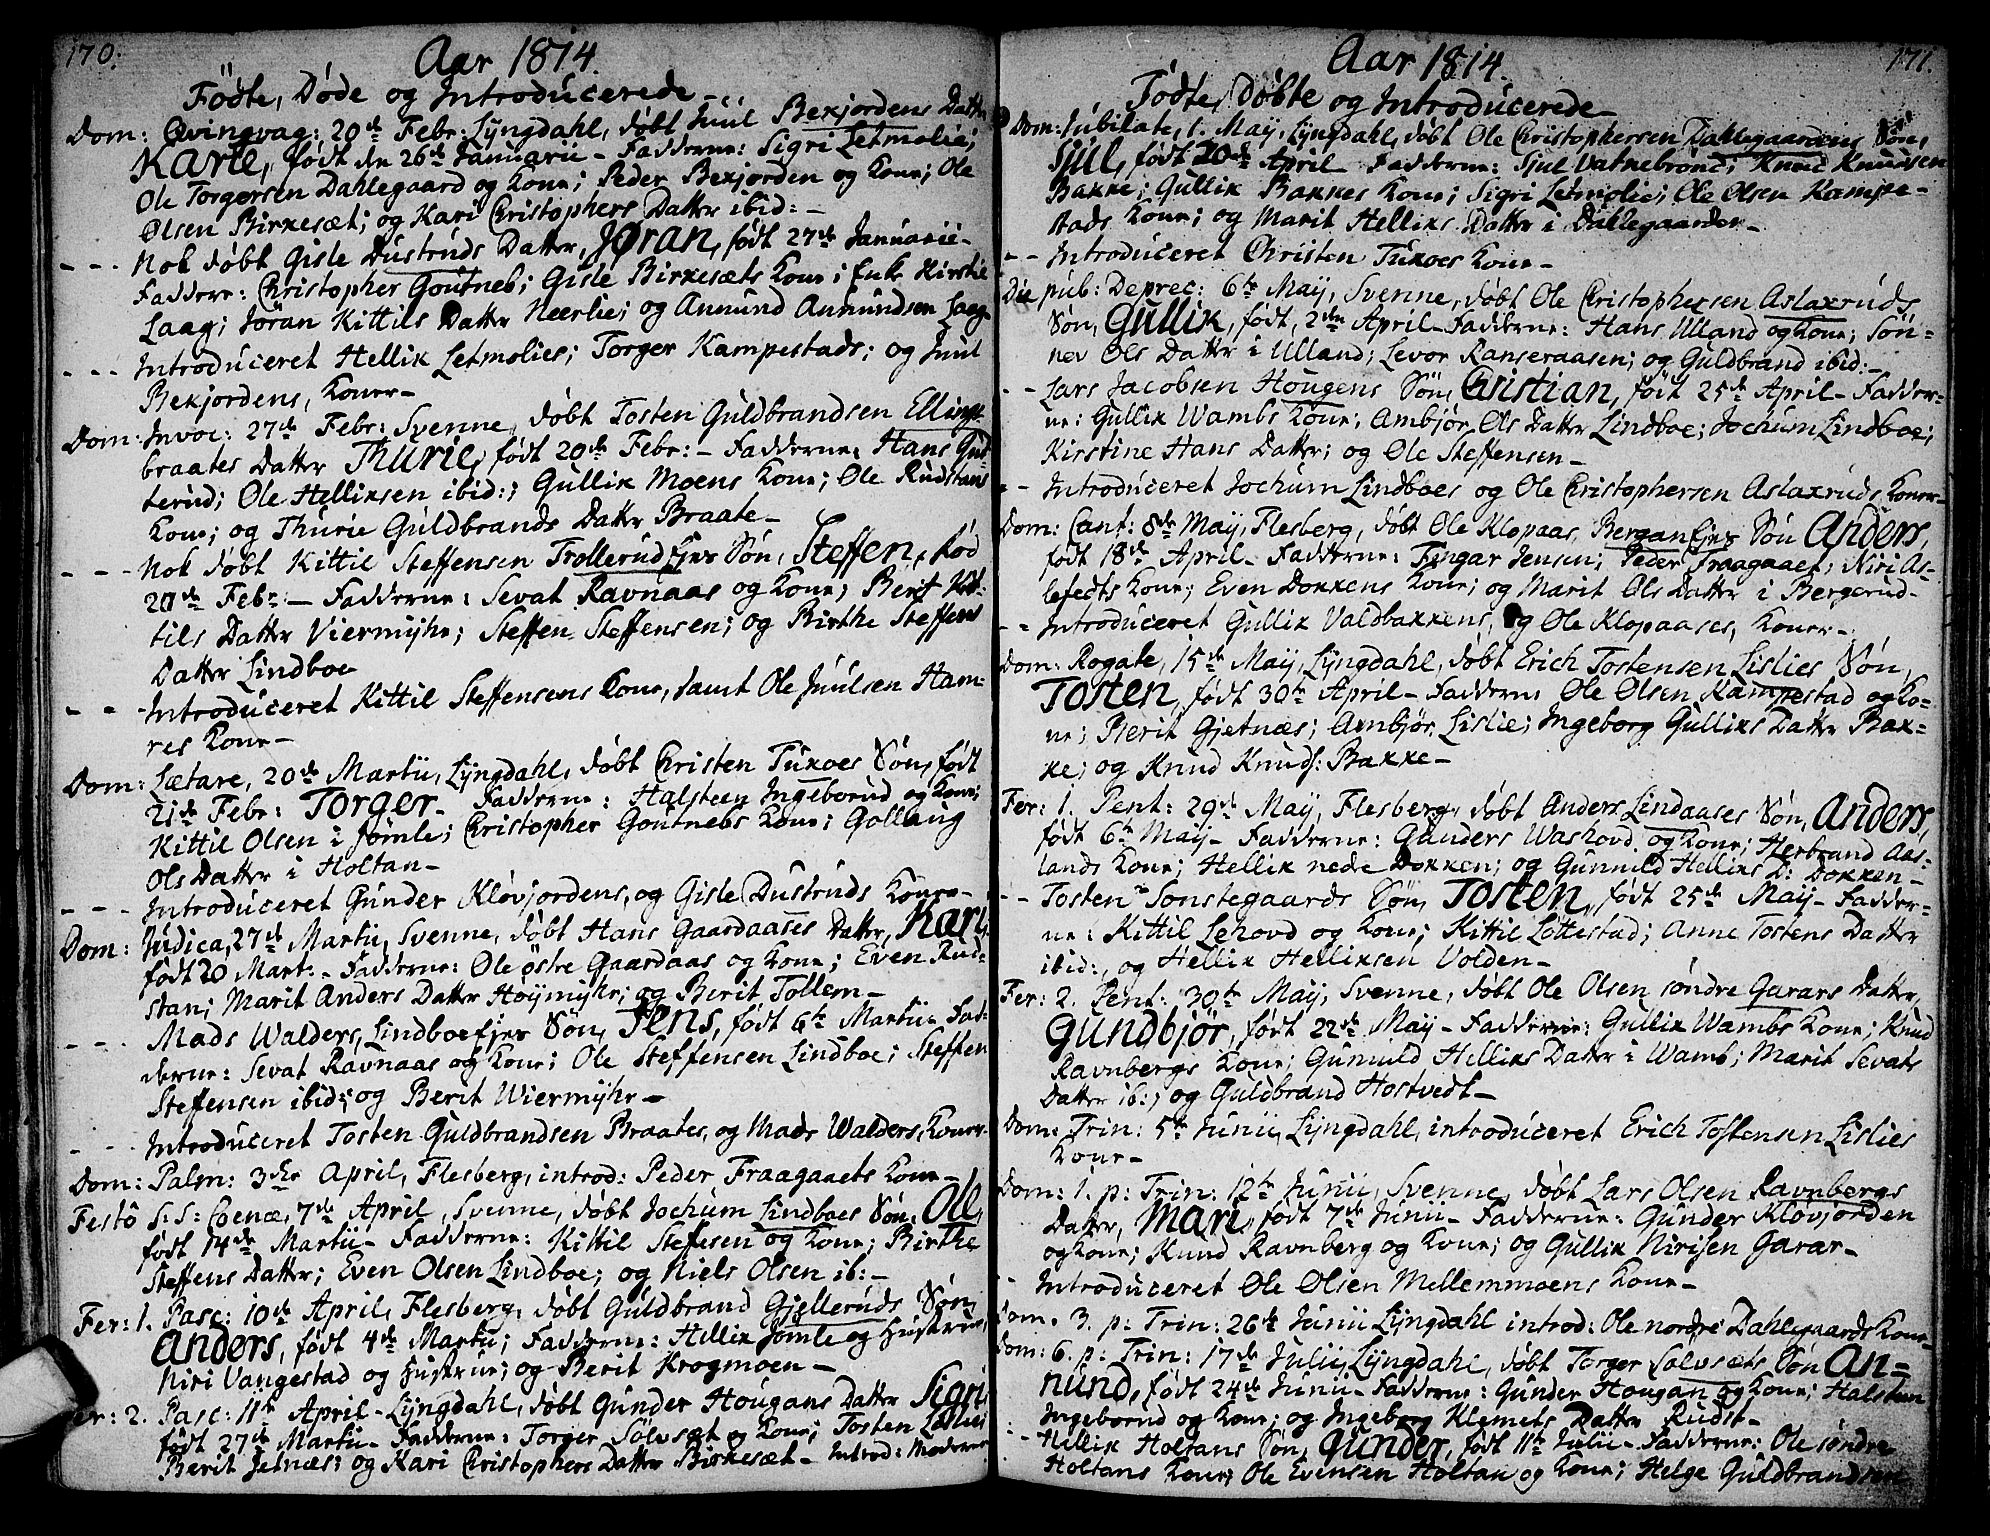 170.
Aar 1814.
Födte, Döde og Introducerede
Dom: Qvingvag: 20de Febr: Lyngdahl, döbt Juul Bexjordens Datter
Karie, födt den 26de Januarii - Fadderne: Sigri Letmolie;
Ole Torgersen Dahlegaard og Kone; Peder Bexjorden og Kone; Ole
Olsen Birkesæt; og Kari Christophers Datter ibid: -
- - - Nok döbt Gisle Dustruds Datter, Jøran, födt 27de Januarii -
Fadderne: Christopher Goutneb; Gisle Birkesæts Kone; Enke Kirstie
Laag; Jöran Kittils Datter Neerlie; og Anmund Anmundsen Laag
- - - Introduceret Hellik Letmolies; Torger Kampestads; og Juul
Bexjordens, Koner -
Dom: Invoc: 27de Febr: Svenne, döbt Tosten Guldbrandsen Ellings
braates Datter Thurie, födt 20de Febr: - Fadderne: Hans Gus-
terud; Ole Helliksen ibid:; Gullik Moens Kone; Ole Rudstans
Kone; og Thurie Guldbrands Datter Braate -
- - - Nok döbt Kittil Steffensen Trollerud Ejes Sön, Steffen, föd
20de Febr: - Fadderne: Sevat Ravnaas og Kone; Berit Kit-
tils Datter Viermyhr; Steffen Steffensen; og Birthe Steffens
Datter Lindboe
- - - Introduceret Kittil Steffensens Kone, samt Ole Juulsen Ham-
res Kone -
Dom: Lætare, 20de Martii, Lyngdahl, döbt Christen Tuxoes Sön, födt
21de Febr: Torger - Fadderne: Halsteen Ingeborud og Kone;
Kittil Olsen i Jömle; Christopher Goutnebs Kone; Gollaug
Ols Datter i Holtan -
- - - Introduceret Gunder Klövjordens, og Gisle Dustruds Koner -
Dom: Judica, 27de Martii, Svenne, döbt Hans Gaardaases Datter, Kari,
födt 20 Mart: - Fadderne: Ole östre Gaardaas og Kone; Even Rud-
stan; Marit Anders Datter Höymyhr; og Berit Tollem -
- - - Mads Walders, Lindboeejes Sön, Jens, födt 6te Martii - Fad-
derne: Sevat Ravnaas og Kone; Ole Steffensen Lindboe; Steffen
Steffensen ibid:; og Berit Wiermyhr -
- - - Introduceret Tosten Guldbrandsen Braates, og Mads Walders, Koner -
Dom: Palm: 3die April, Flesberg, introd: Peder Fraagaaets Kone -
Festô S: S: Coenæ, 7de April, Svenne, döbt Jochum Lindboes Sön, Ole,
födt 14de Martii - Fadderne: Kittil Steffesen og Kone; Birthe
Steffens Datter; Even Olsen Lindboe; og Niels Olsen ib: -
Fer: 1. Pasc: 10de April, Flesberg, döbt Guldbrand Gjelleruds Sön,
Anders, födt 4de Martii; Fadderne: Hellik Jömle og Hustrue;
Niri Vangestad og Hustrue; og Berit Krogmoen -
Fer: 2. Pasc: 11te April - Lyngdahl, döbt Gunder Hougans Datter Sigri
födt 27de Martii - Fadderne: Torger Sölvsæt og Kone; Tosten Leslies
Berit Jetnæs; og Kari Christophers Datter Birkesæt - Introd: Moderen
171.
Aar 1814.
Födte, döbte og Introducerede
Dom: Jubilate, 1. May, Lyngdahl, döbt Ole Christophersen Dahlegaardens Sön,
Sjul, födt 20de April - Fadderne: Sjul Vatnebrönd; Knud Knudsen
Bakke; Gullik Bakkes Kone; Sigri Letmolie; Ole Olsen Kampe-
stads Kone; og Marit Helliks Datter i Dahlegaarden -
- - Introduceret Christen Tuxoes Kone -
Die pub: Deprec: 6te May, Svenne, döbt Ole Christophersen Aslaxruds
Sön, Gullik, födt, 2den April - Fadderne: Hans Ulland og Kone; Sön-
nev Ols Datter i Ulland; Levor Ranseraasen; og Guldbrand ibid: -
- - Lars Jacobsen Hougens Sön, Cristian, födt 25de April - Fadder-
ne: Gullik Wambs Kone; Ambjör Ols Datter Lindboe; Jochum Lindboe;
Kirstine Hans Datter; og Ole Steffensen -
- - Introduceret Jochum Lindboes og Ole Christophersen Aslaxruds Koner -
Dom: Cant: 8de May, Flesberg, döbt Ole Klopaas, Bergan Ejes Sön Anders,
födt 18de April - Fadderne: Ingar Jensen; Peder Fraagaaet; Niri As-
lefedts Kone; Even Dokkens Kone; og Marit Ols Datter i Bergerud -
- - Introduceret Gullik Valdbakkens, og Ole Klopaases, Koner -
Dom: Rogate, 15de May, Lyngdahl, döbt Erich Tostensen Lislies Sön,
Tosten, födt 30te April - Fadderne Ole Olsen Kampestad og Ko-
ne; Berit Gjetnæs; Arnbjör Lislie; Ingeborg Gulliks Datter Bak-
ke; og Knud Knuds: Bakke -
Fer: 1. Pent: 29de May, Flesberg, döbt Anders Lindaases Sön, Anders,
födt 6te May - Fadderne: Gunders Washovd og Kone; Herbrand Aas-
lands Kone; Hellik nedre Dokken; og Gunnild Helliks D: Dokken -
- - Tosten Sonstegaards Sön, Tosten, födt 25de May - Fadder-
ne: Kittil Lehovd og Kone; Kittil Löttestad; Anne Tostens Datter
ibid:, og Hellik Helliksen Volden -
Fer: 2. Pent: 30te May, Svenne, döbt Ole Olsen söndre Garars Datter,
Gundbjör, født 22de May - Fadderne: Gullik Wambs Kone; Knud
Ravnbergs Kone; Gunnild Helliks Datter i Wamb; Marit Sevats
Datter ib:; og Guldbrand Hostvedt -
Dom: Trin: 5te Junii, Lyngdahl, introduceret Erich Tostensen Lislies
Kone -
Dom: 1. p: Trin: 12te Junii, Svenne, döbt Lars Olsen Ravnbergs
Datter, Mari, födt 7de Junii - Fadderne: Gunder Klövjorden
og Kone; Knud Ravnberg og Kone; og Gullik Nirisen Garar -
- - Introduceret Ole Olsen Mellemmoens Kone -
Dom. 3. p: Trin: 26de Junii Lyngdahl introd: Ole nordre Dahlegaards Kone -
Dom: 6. p: Trin: 17de Julii, Lyngdahl, döbt Torger Sölvsæts Sön An-
nund, födt 24de Junii - Fadderne: Gunder Hougan og Kone; Halsten
Ingeborud og Kone; og Ingeborg Klemets Datter Rudst -
- - Hellik Holtans Sön, Gunder, födt 11te Julii - Fadderne: Ole söndre
Holtans Kone; Ole Evensen Holtan og Kone; Helge Guldbrandsen